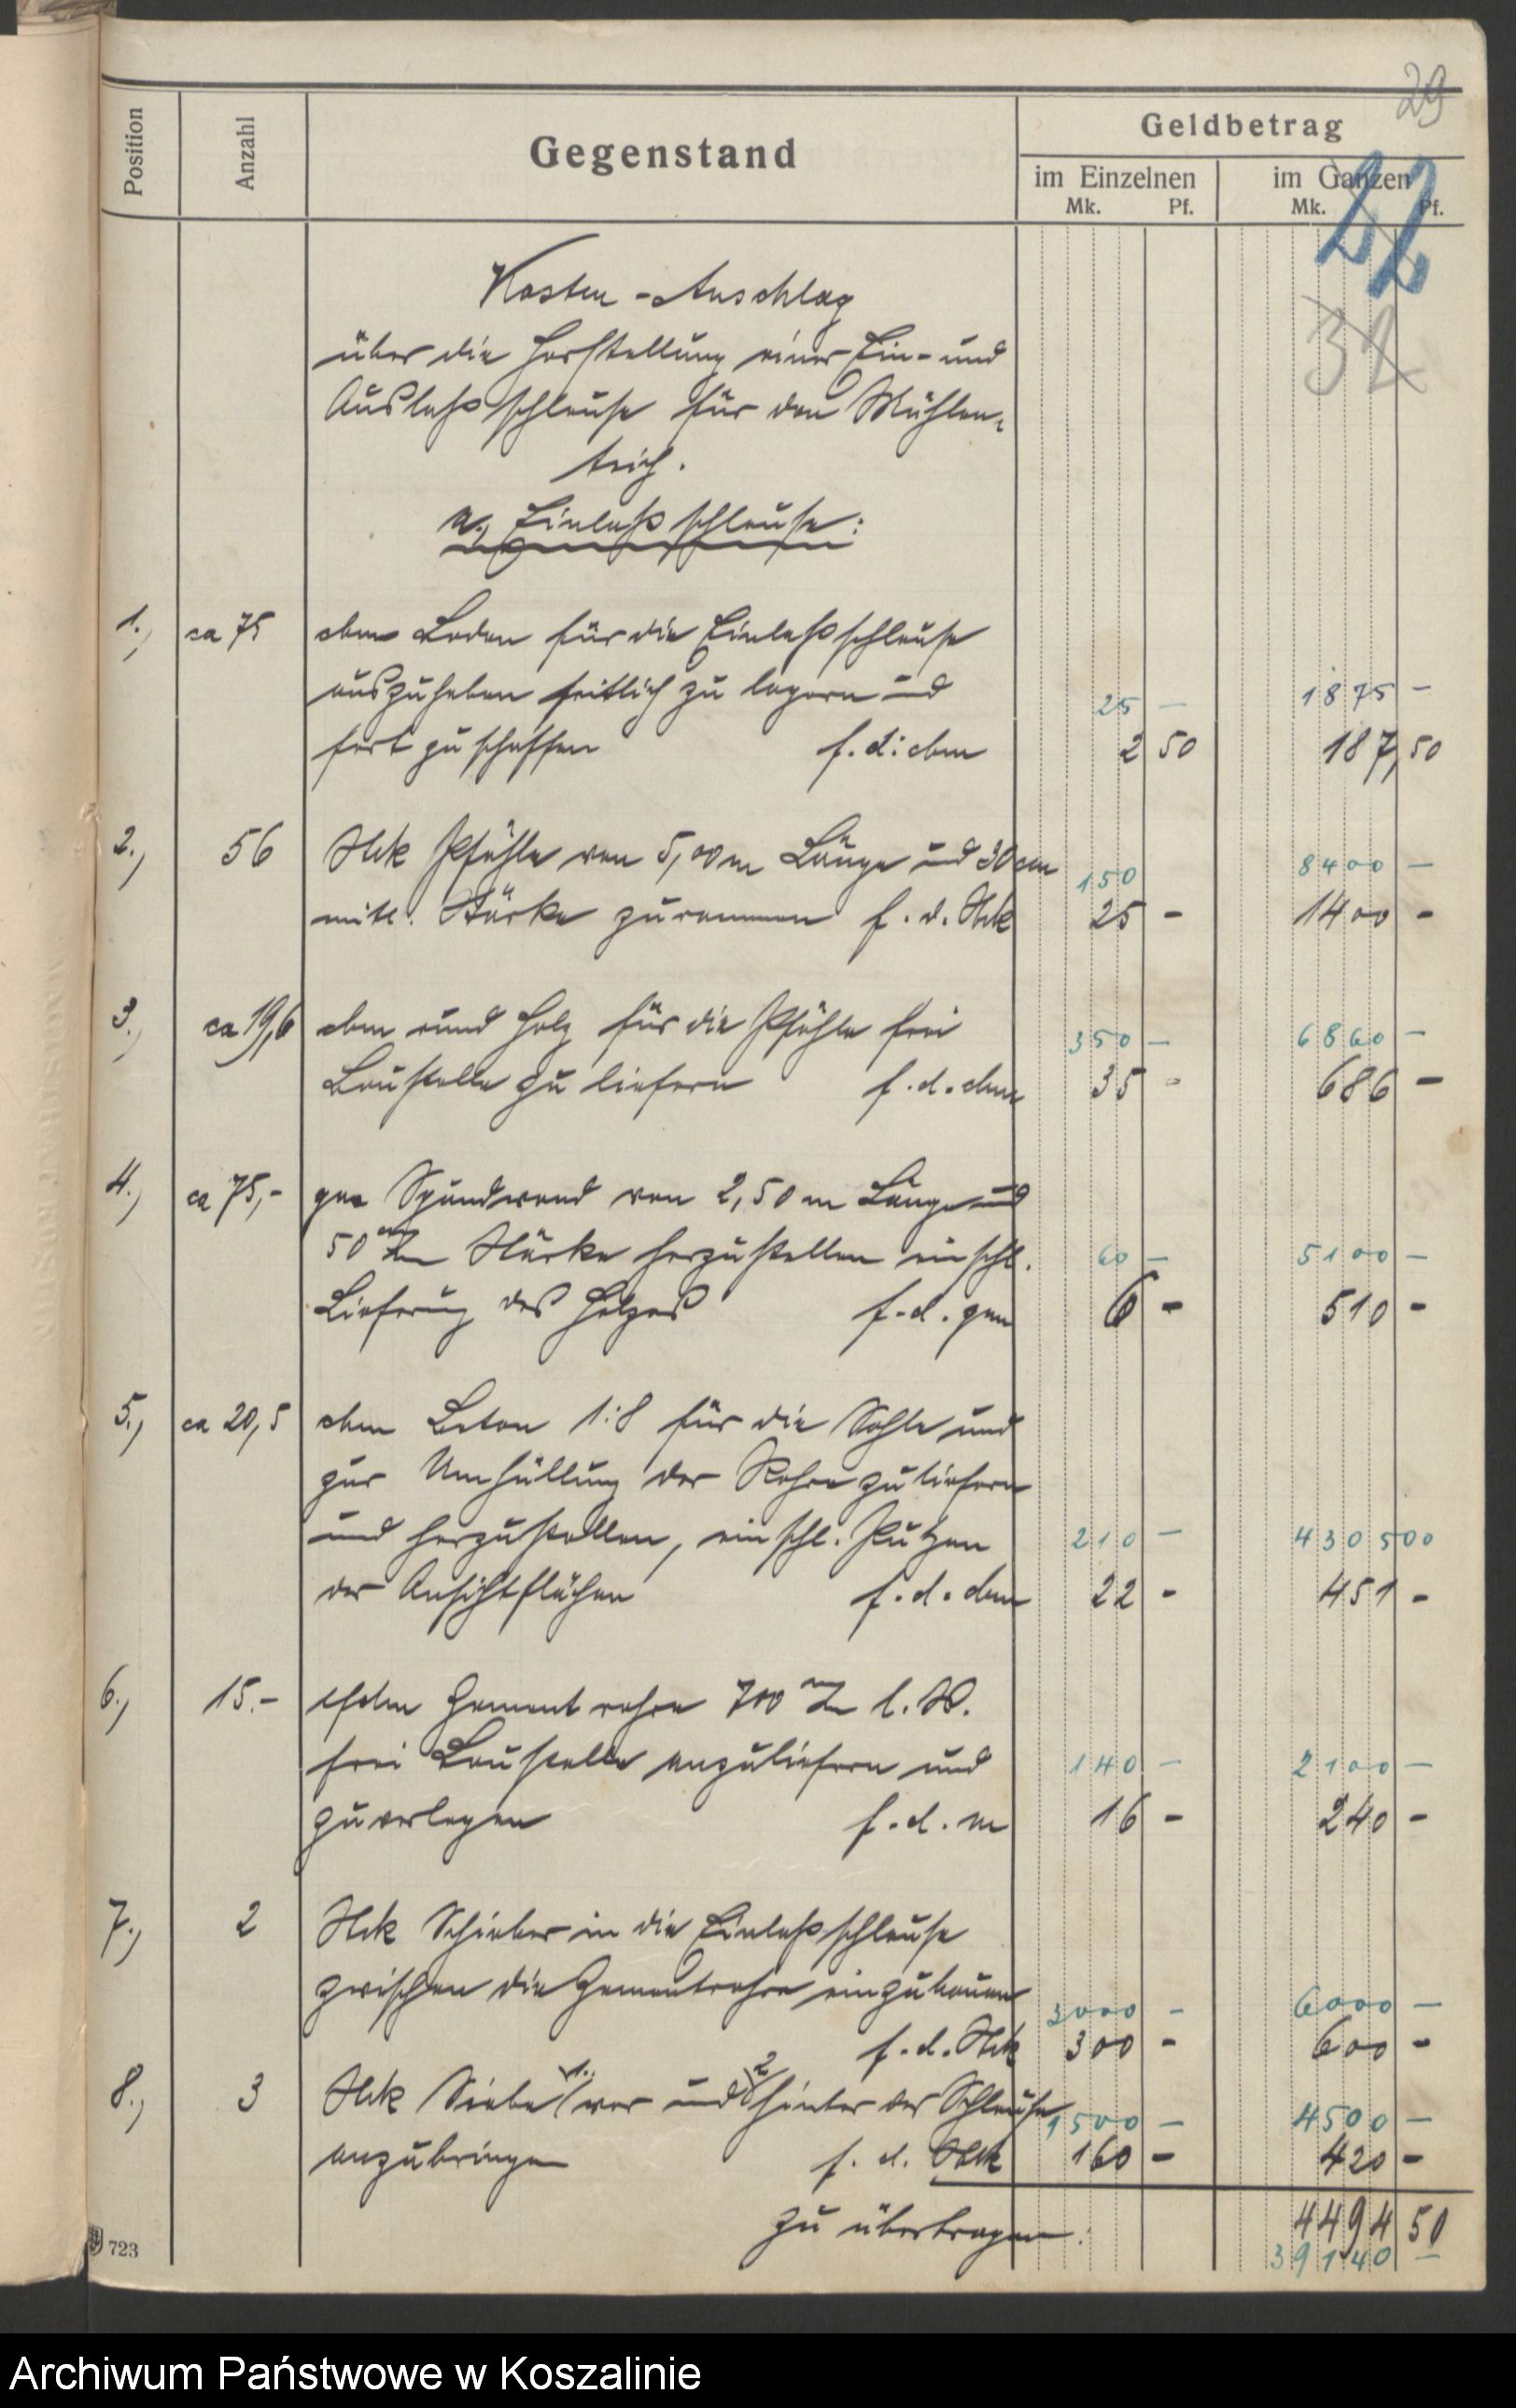 29
Position Anzahl Gegenstand Geldbetrag
im Einzelnen im Ganzen
Mk. Pf. Mk. Pf.
22
32
Kosten-Anschlag
über die Herstellung einer Ein- und
Auslaßschleuse für den Mühlen-
teich.
a., Einlaßschleuse:
1., ca 75 cbm Boden für die Einlaßschleuse
auszuheben seitlich zu lagern und 25 — 1875 —
fort zu schaffen f. d: cbm 2 50 187,50
2., 56 Stck Pfähle von 5,00 m Länge und 30 cm 150 8400 —
mittl. Stärke zu rammen f. d. Stck 25 - 1400 -
3., ca 19,6 cbm rund Holz für die Pfähle frei 350 — 6860 —
Baustelle zu liefern f. d. cbm 35 - 686 -
4., ca 75,- qm Spundwand von 2,50 m Länge und
50 m/m Stärke herzustellen einschl. 60 — 5100 —
Lieferung des Holzes f. d. qm 6 - 510 -
5., ca 20,5 cbm Beton 1:8 für die Sohle und
zur Umhüllung der Rohre zu liefern
und herzustellen, einschl. Putzen 210 — 4305 00
der Ansichtflächen f. d. cbm 22 - 451 -
6., 15.- lfdm Zementrohre 700 m/m l. W.
frei Baustelle anzuliefern und 140 — 2100 —
zu verlegen f. d. m 16 - 240 -
7., 2 Stck Schieber in die Einlaßschleuse
zwischen die Zementrohre einzubauen 3000 - 6000 —
f. d. Stck 300 - 600 -
8., 3 Stck Siebe 1. vor und 2 hinter der Schleuse 1500 — 4500 —
anzubringen f. d. Stck 160 - 420 -
zu übertragen: 4494 50
39140 —
723
Archiwum Państwowe w Koszalinie